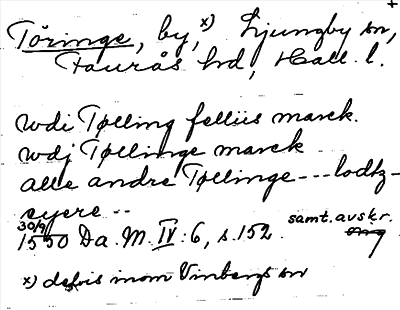 +
Töringe, by, x) Ljungby sn,
Faurås hd, Hall. l.
udi Tølling felliis marck.
udj Tøllinge marck
alle andre Tøllinge --- lodtz-
eyere --
30/9 1550 Da. M. IV:6, s. 152. samt. avskr.
x) delvis inom Vinbergs sn